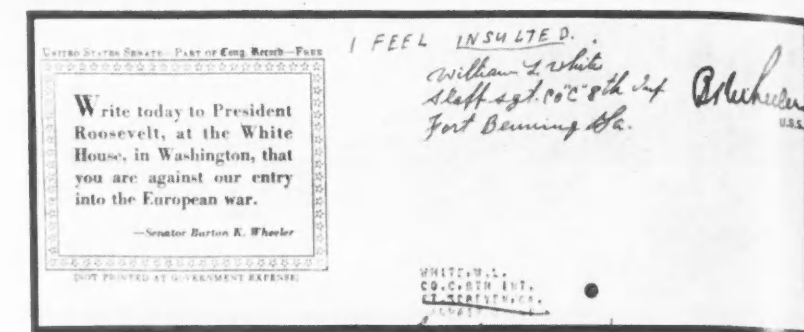 UNITED STATES SENATE—PART OF Cong. Record—FREE
Write today to President
Roosevelt, at the White
House, in Washington, that
you are against our entry
into the European war.
—Senator Burton K. Wheeler
[NOT PRINTED AT GOVERNMENT EXPENSE]
I FEEL INSULTED.
William L. White
Staff sgt. Co "C" 8th Inf
Fort Benning Ga.
BKWheeler
U.S.S.
WHITE, W.L.
CO.C. 8TH INT.
FT. SCREVEN, GA.